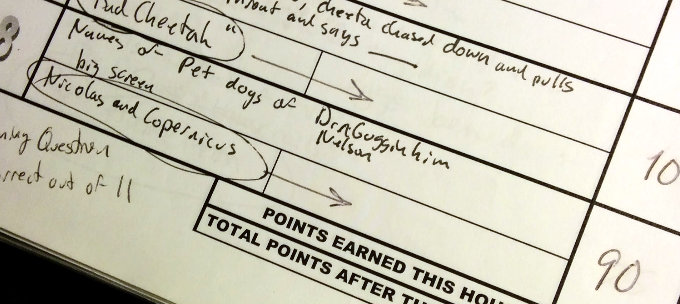 cheeta chased down and pulls
"Bad Cheetah"
out and says ___
8
Names of Pet dogs of Drn Gugginhim
big screen Nelson
Nicolas and Copernicus
10
Question
rrect out of 11
POINTS EARNED THIS HOU
90
TOTAL POINTS AFTER TH